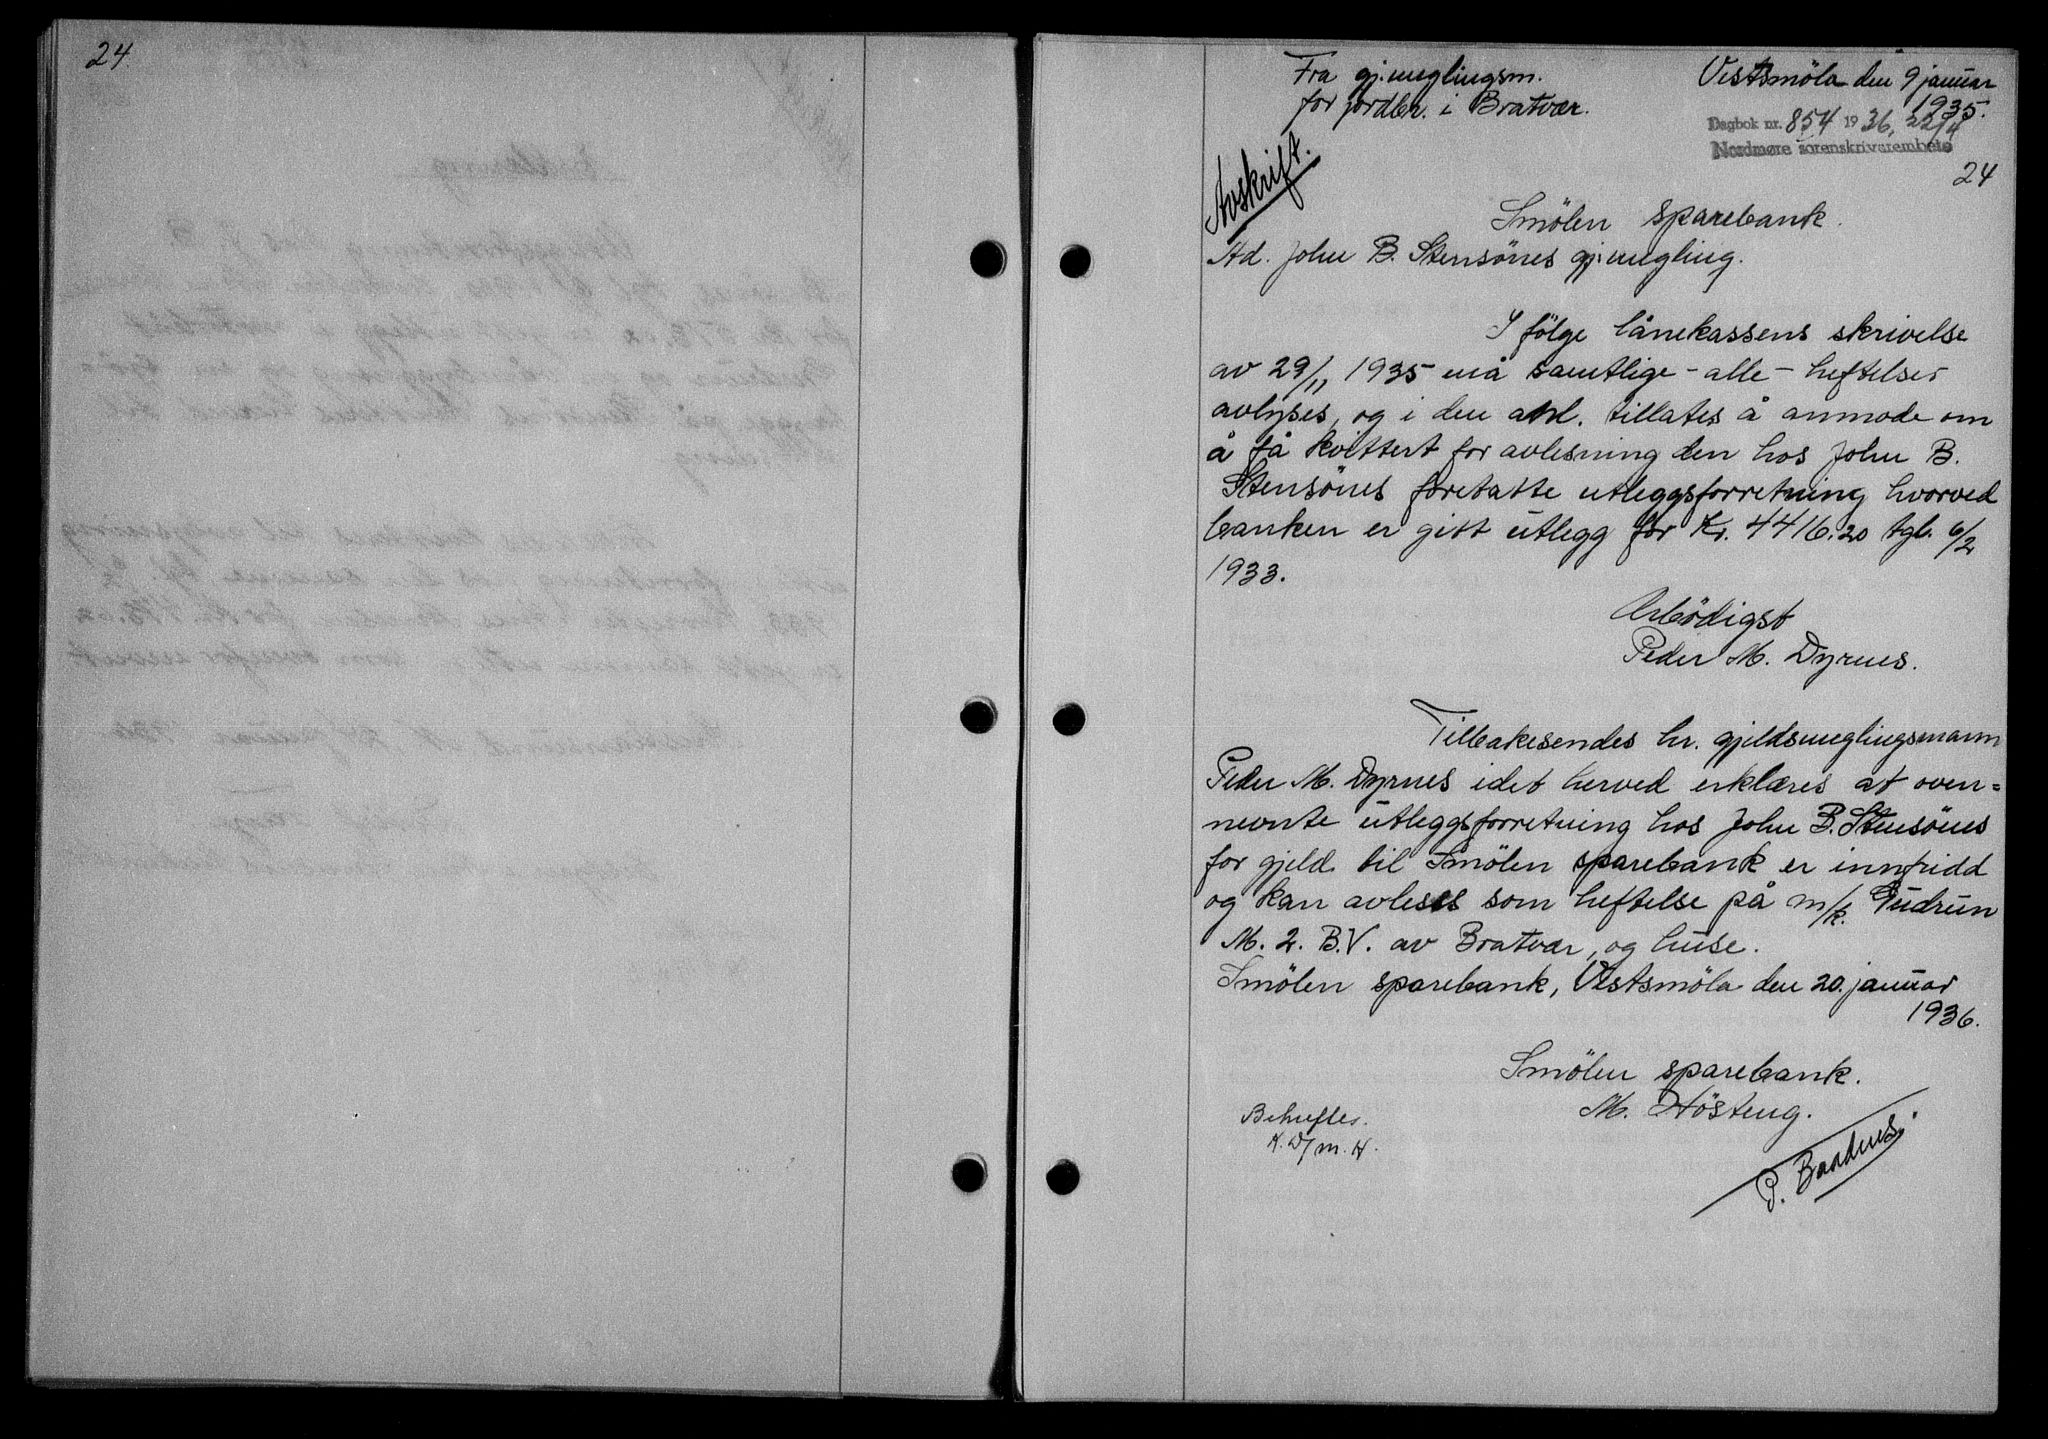 24.
Fra gj.meglingsm.
for jordbr. i Bratvær.
Vestsmöla den 9 januar
1935.
Dagbok nr. 854 1936, 22/4
Nordmøre sorenskriverembete
24
Avskrift.
Smölen sparebank.
Ad. John B. Stensönes gj.megling.
I fölge lånekassens skrivelse
av 29/11 1935 må samtlige - alle - heftelser
avlyses, og i den anl. tillates å anmode om
å få kvittert for avlesning den hos John B.
Stensönes foretatte utleggsforretning hvorved
banken er gitt utlegg for Kr. 4416.20 tgl. 6/2
1933.
Arbödigst
Peder M. Dyrnes.
Tilbakesendes hr. gjeldsmeglingsmann
Peder M. Dyrnes idet herved erklæres at oven=
nevnte utleggsforretning hos John B. Stensönes
for gjeld til Smölen sparebank er innfridd
og kan avleses som heftelse på m/k. Gudrun
M. 2. B.V. av Bratvær, og huse.
Smölen sparebank, Vestsmöla den 20. januar
1936.
Smölen sparebank.
M. Hösteng.
Behuftes.
K. D/m. H.
P. Baadnes.